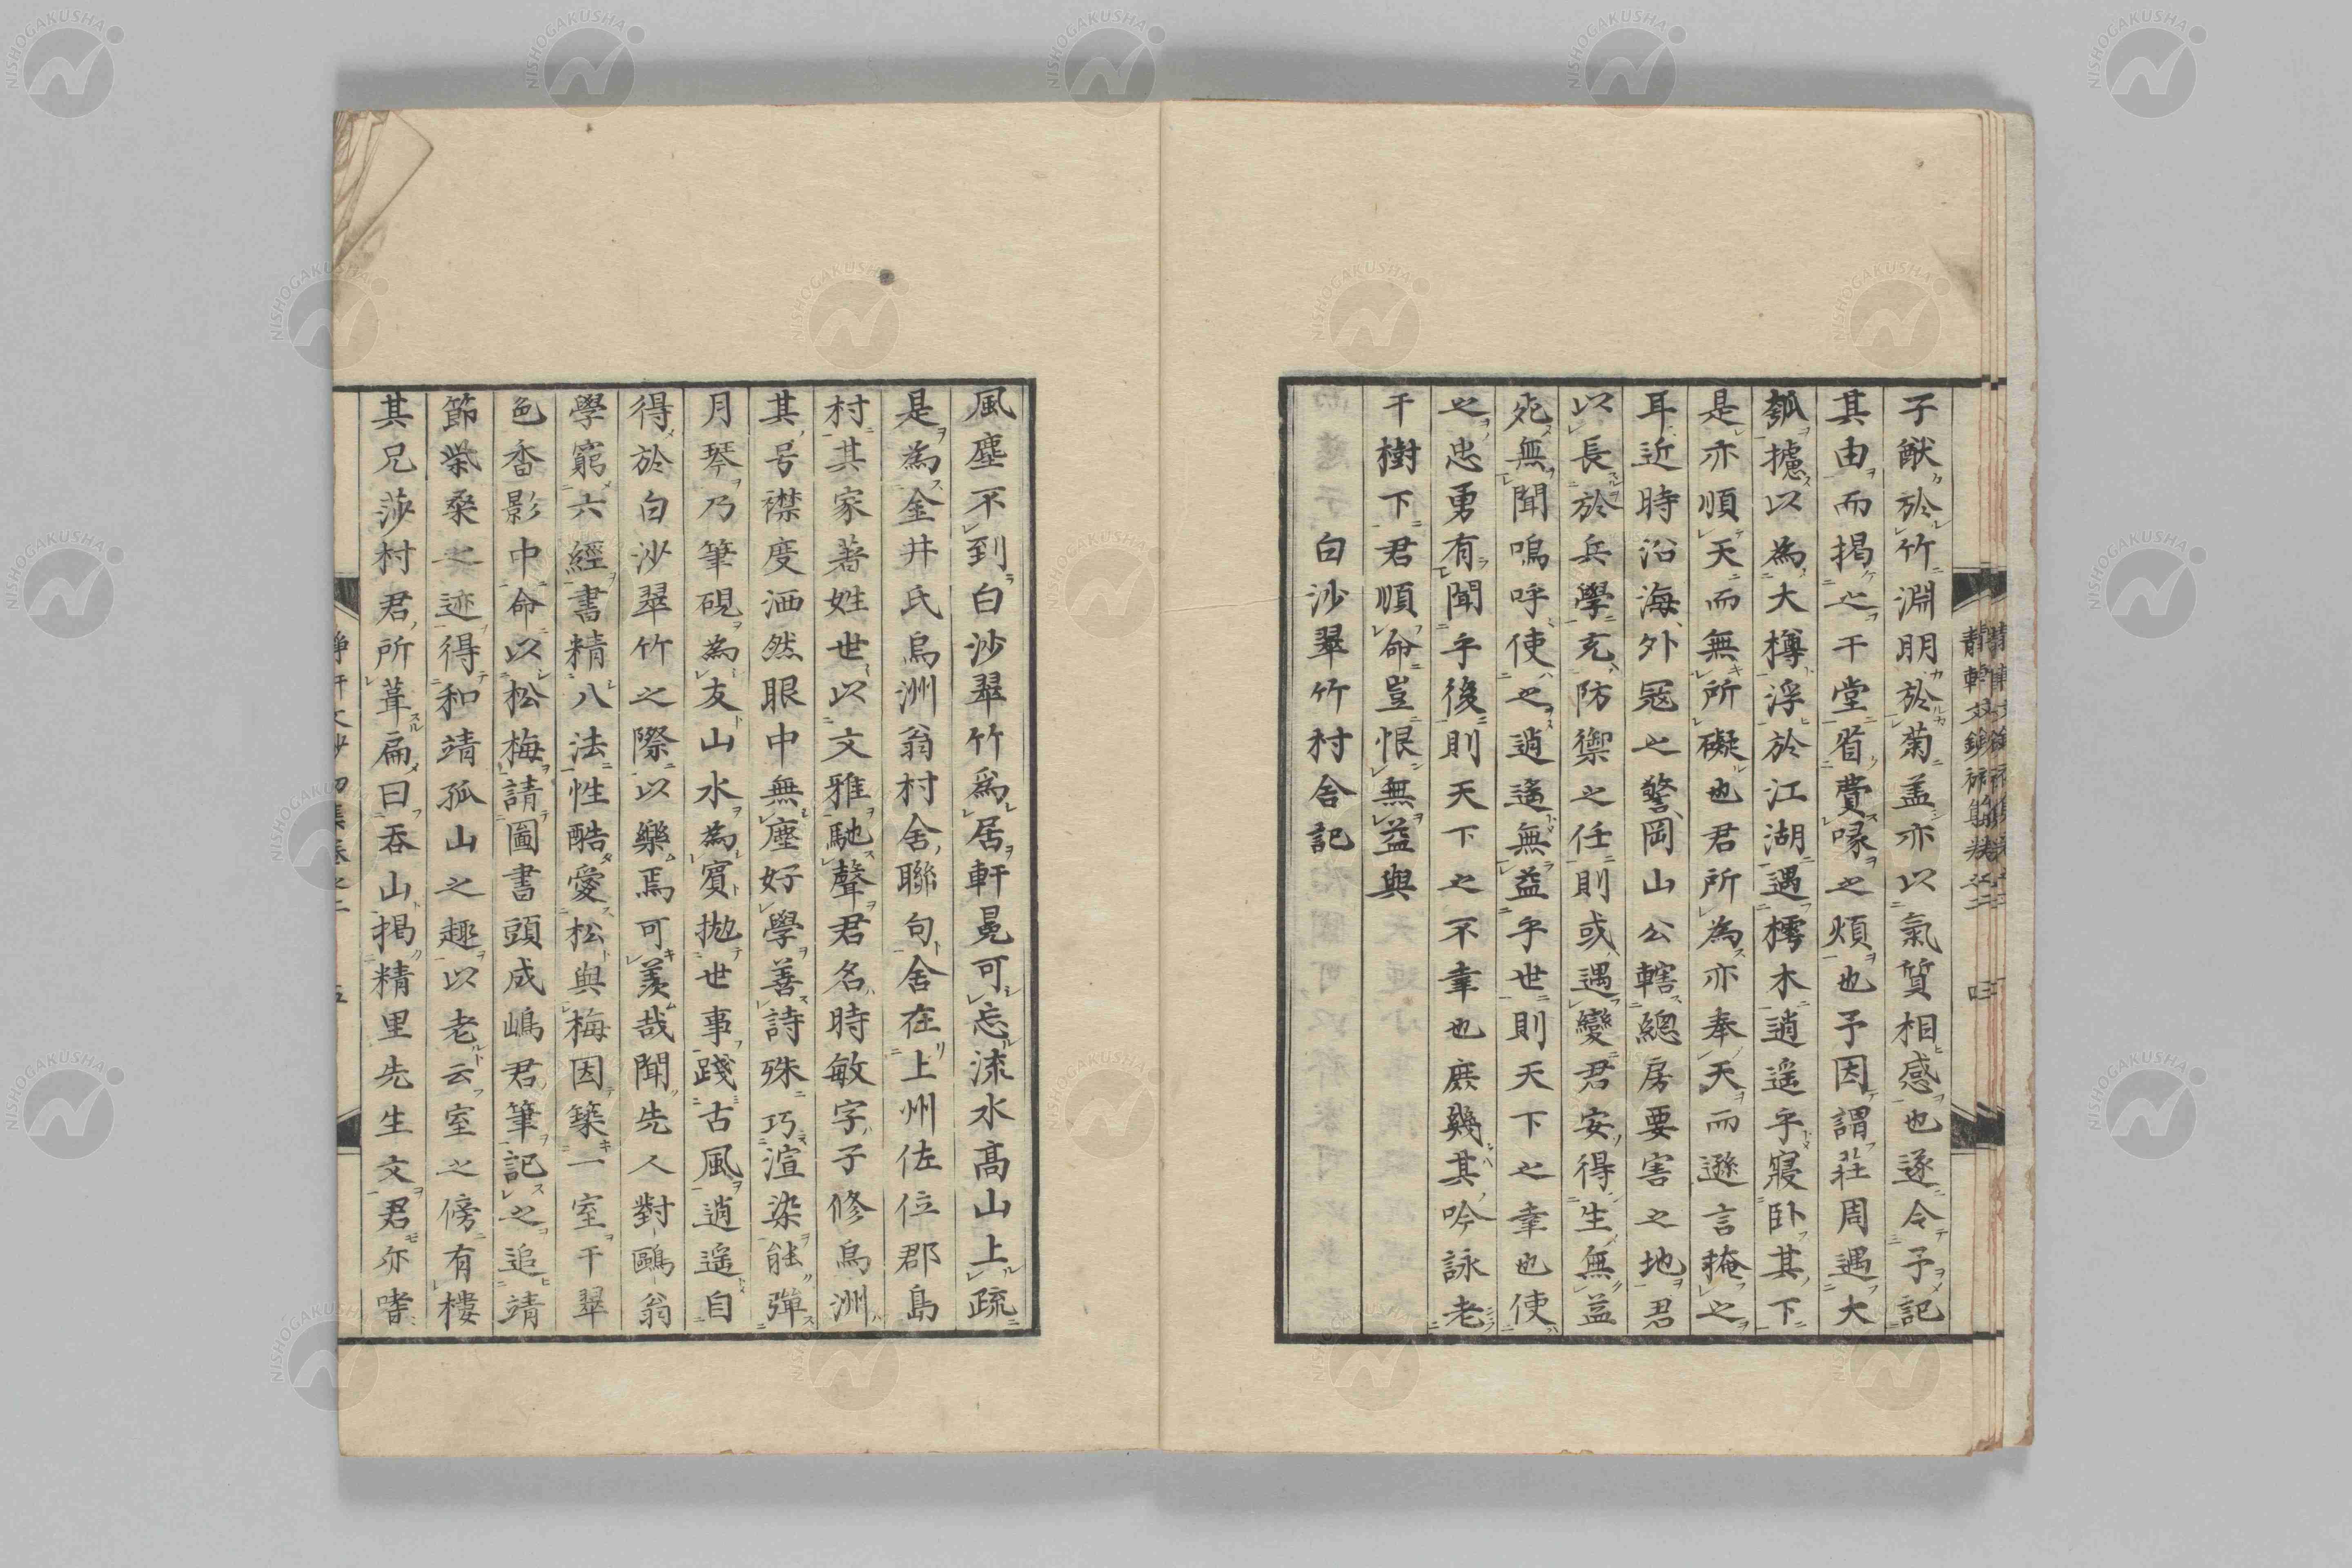 子猷於竹淵明於菊盖亦以氣質相感也遂令予記
其由而揭之干堂省費喙之煩也予因謂莊周遇大
瓠攄以為大樽浮於江湖遇樗木逍遥乎寢卧其下
是亦順天而無所礙也君所為亦奉天而遜言掩之
耳近時沿海外冦之警岡山公轄總房要害之地君
以長於兵學充防禦之任則或遇變君安得生無益
死無聞嗚呼使之逍遙無益乎世則天下之幸也使
之忠勇有聞乎後則天下之不幸也庶幾其吟詠老
干樹下君順命豈恨無益與
白沙翠竹村舍記
風塵不到白沙翠竹為居軒冕可忘流水髙山上疏
是為金井氏烏洲翁村舍聯句舍在上州佐位郡島
村其家著姓世以文雅馳聲君名時敏字子修烏洲
其号襟度洒然眼中無塵好學善詩殊巧渲染能彈
月琴乃筆硯為友山水為賓拋世事踐古風逍遥自
得於白沙翠竹之際以樂焉可羨哉聞先人對鷗翁
學窮六經書精八法性酷愛松與梅因築一室干翠
色香影中命以松梅請圖書頭成嶋君筆記之追靖
節柴桑之迹得和靖孤山之趣以老云室之傍有樓
其兄莎村君所葺扁曰呑山揭精里先生文君亦嗜